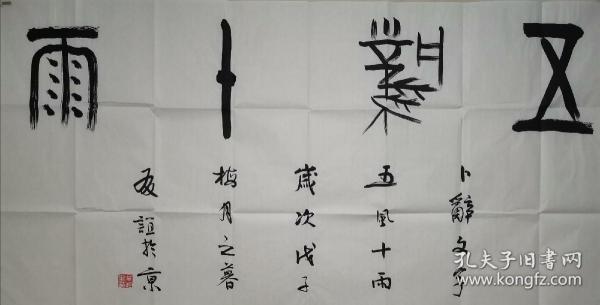 五風十雨
卜辭文字
五風十雨
歲次戊子
梅月之暮
友誼於京
孔夫子旧書网
www.kongfz.com